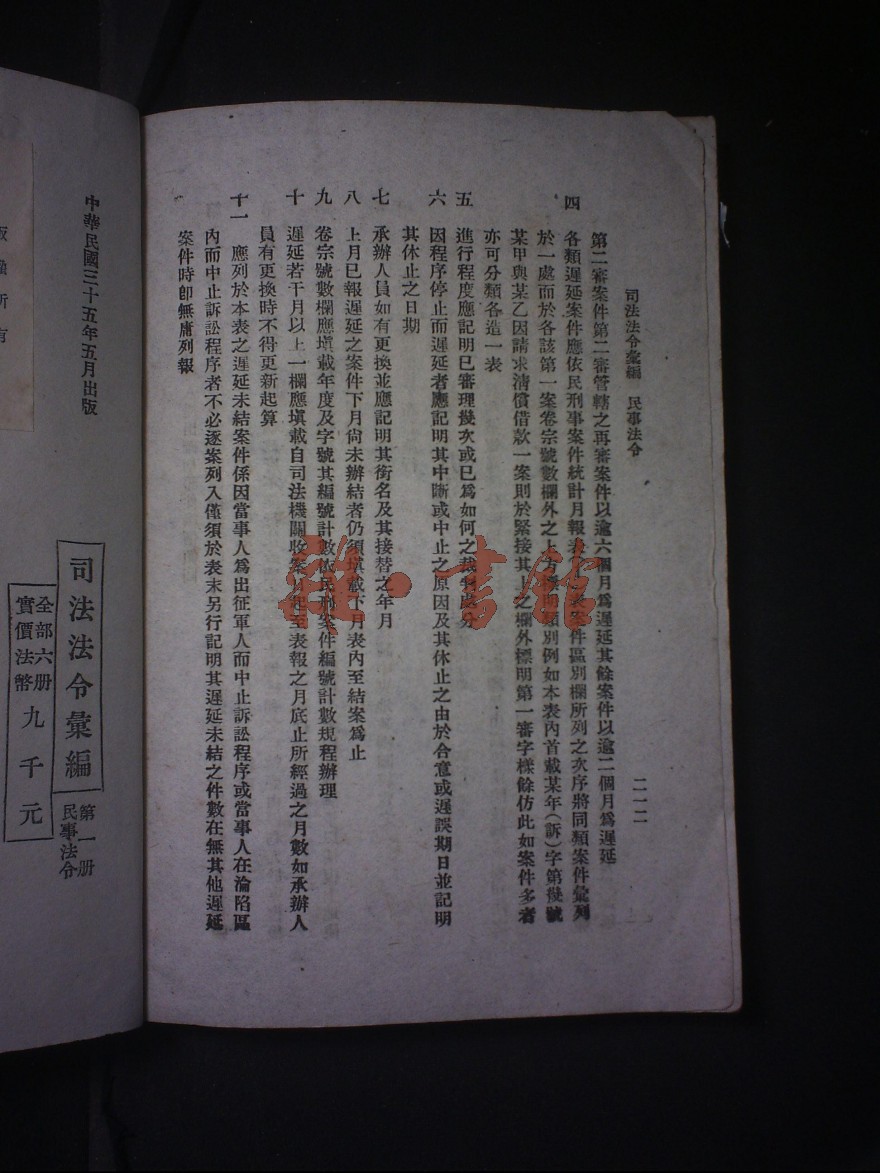 司法法令彙編　民事法令
二一二
第二審案件第二審管轄之再審案件以逾六個月爲遲延其餘案件以逾二個月爲遲延
四　各類遲延案件應依民刑事案件統計月報表（）表案件區別欄所列之次序將同類案件彙列
於一處而於各該第一案卷宗號數欄外之上方標明類別例如本表內首載某年（訴）字第幾號
某甲與某乙因請求清償借款一案則於緊接其上之欄外標明第一審字樣餘仿此如案件多者
亦可分類各造一表
五　進行程度應記明已審理幾次或已爲如何之裁判處分
六　因程序停止而遲延者應記明其中斷或中止之原因及其休止之由於合意或遲誤期日並記明
其休止之日期
七　承辦人員如有更換並應記明其銜名及其接替之年月
八　上月已報遲延之案件下月尚未辦結者仍須填載下月表內至結案爲止
九　卷宗號數欄應填載年度及字號其編號計數依民刑案件編號計數規程辦理
十　遲延若干月以上一欄應填載自司法機關收案日起至表報之月底止所經過之月數如承辦人
員有更換時不得更新起算
十一　應列於本表之遲延未結案件係因當事人爲出征軍人而中止訴訟程序或當事人在淪陷區
內而中止訴訟程序者不必逐案列入僅須於表末另行記明其遲延未結之件數在無其他遲延
案件時卽無庸列報
版
所有
中華民國三十五年五月出版
司法法令彙編
第一册
民事法令
全部六册
實價法幣
九千元
書館